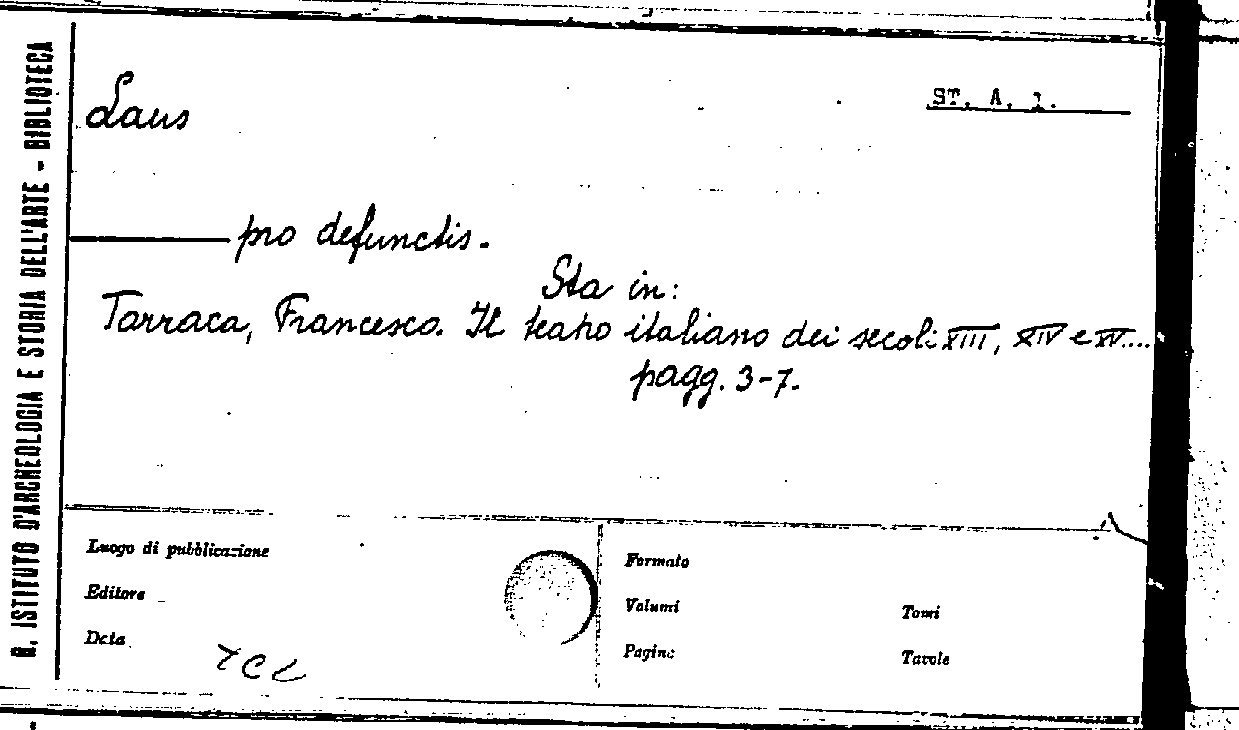 R. ISTITUTO D'ARCHEOLOGIA E STORIA DELL'ARTE - BIBLIOTECA
ST. A. 1.
Laus
——— pro defunctis.
Sta in:
Torraca, Francesco. Il teatro italiano dei secoli XIII, XIV e XV....
pagg. 3-7.
Luogo di pubblicazione
Editore
Data
Formato
Volumi
Tomi
Pagine
Tavole